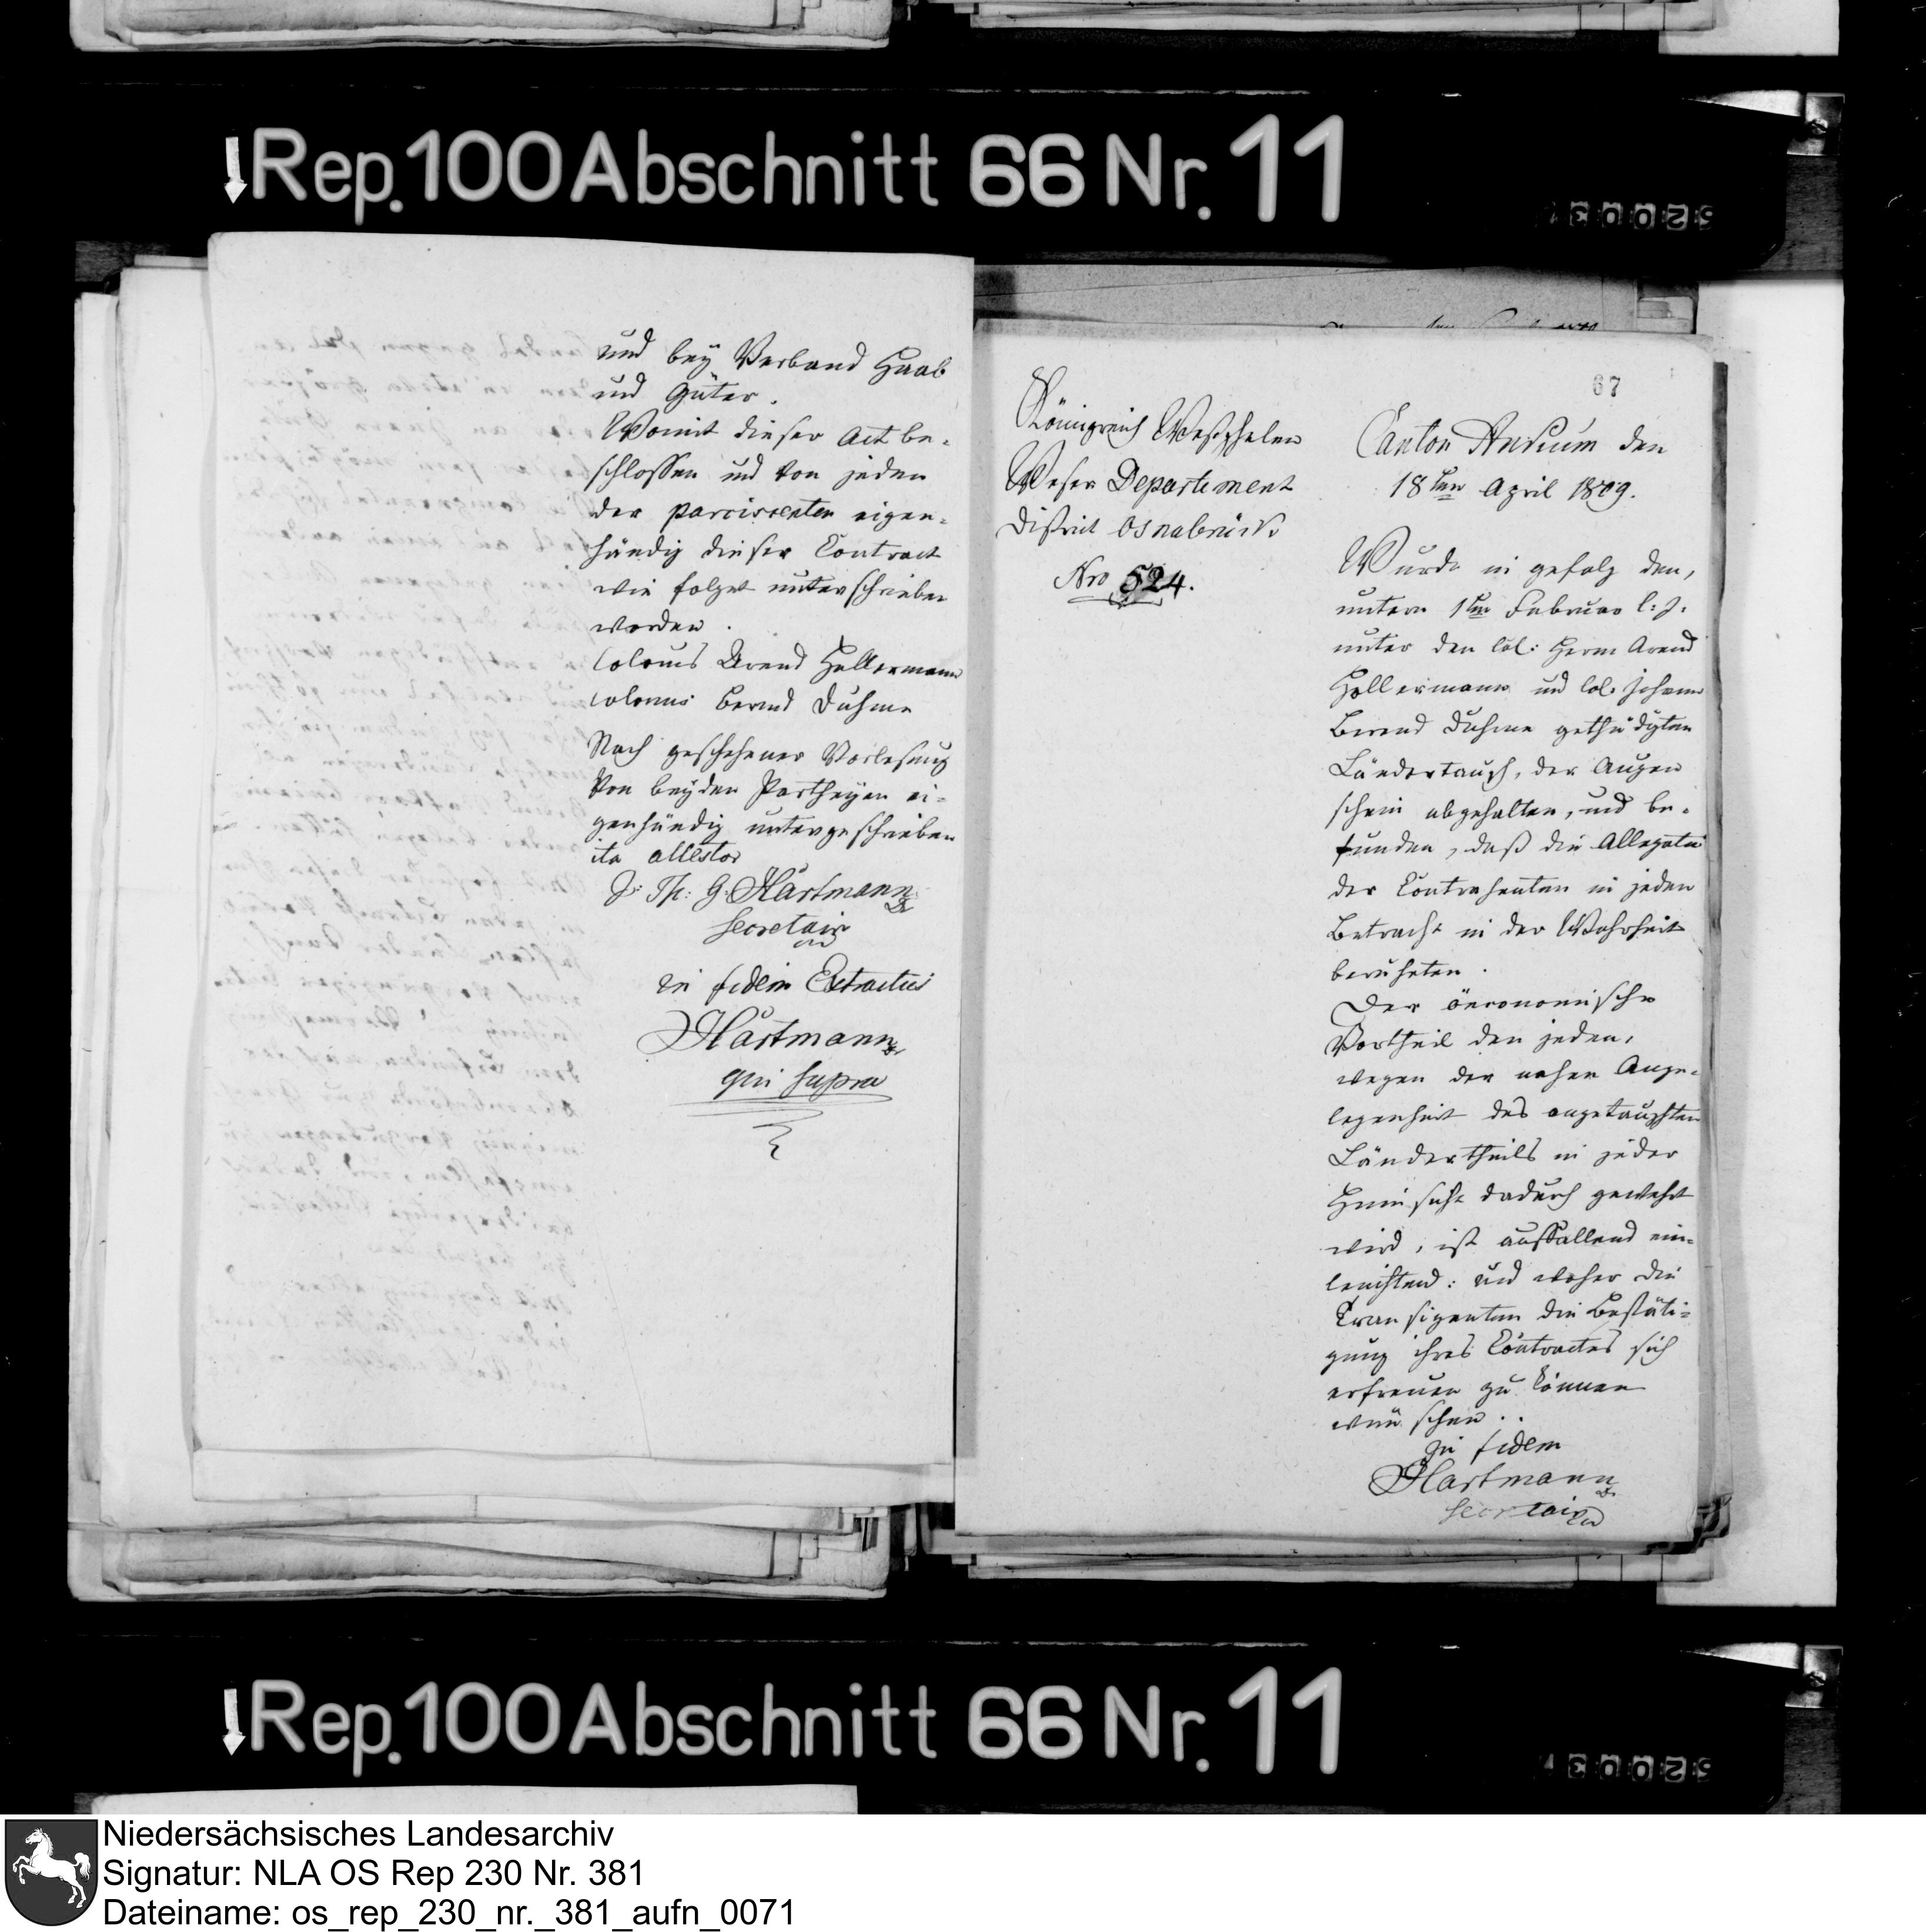 Rep. 100 Abschnitt 66 Nr. 11
und bey Verband Haab
und Güter.
Womit dieser Act be-
schlossen und von jeden
der parciscenten eigen-
händig dieser Contract
wie folget unterschrieben
worden.
Colonus Arend Hallermann
colonus Berend Duhme
Nach geschehener Vorlesung
von beyden Partheyen ei-
genhändig untergeschrieben
ita attestor
J: Th: G: Hartmann
Secretair
in fidem Extractus
Hartmann
qui supra
67
Königreich Westphalen
Weser Departement
District Osnabrück.
Nro 524.
Canton Ankum den
18ten April 1809.
Wurde in gefolg den,
unterm 1ten Februar l: J:
unter den Col: Herm Arend
Hallermann und Col. Johann
Berend Duhme gethädigten
Ländertausch, der Augen
schein abgehalten, und be-
funden, daß die Allegata
der Contrahenten in jeden
Betracht in der Wahrheit
beruheten.
Der öeconomische
Vortheil den jeden,
wegen der nahen Ange-
legenheit des angetauschten
Ländertheils in jeder
Hinsicht dadurch gewährt
wird, ist auffallend ein-
leuchtend: und woher die
Transigenten die Bestäti-
gung ihres Contractes sich
erfreuen zu können
wünschen..
In fidem
Hartmann
Secretair
Rep. 100 Abschnitt 66 Nr. 11
Niedersächsisches Landesarchiv
Signatur: NLA OS Rep 230 Nr. 381
Dateiname: os_rep_230_nr._381_aufn_0071